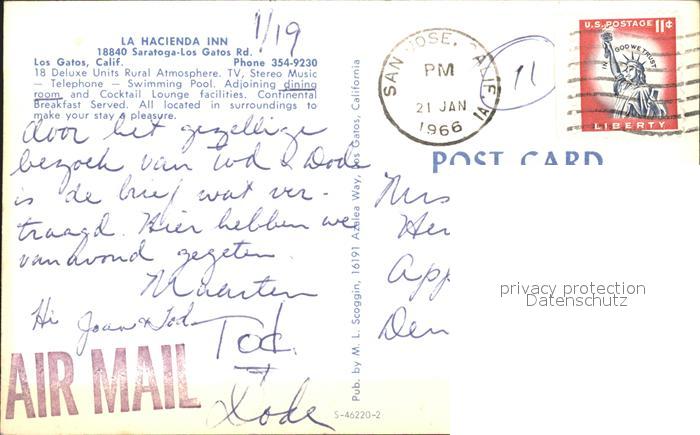 1/19
LA HACIENDA INN
18840 Saratoga-Los Gatos Rd.
Los Gatos, Calif. Phone 354-9230
18 Deluxe Units Rural Atmosphere. TV, Stereo Music
— Telephone — Swimming Pool. Adjoining dining
room, and Cocktail Lounge facilities. Continental
Breakfast Served. All located in surroundings to
make your stay a pleasure.
door het gezellige
bezoek van Tod & Dode
is de brief wat ver-
traagd. Hier hebben we
vanavond gegeten.
Maarten
Hi Joan & Tod
Tod
+
Dode
AIR MAIL
Pub. by M. L. Scoggin, 16191 Azalea Way, Los Gatos, California
S-46220-2
SAN JOSE, CALIF
PM
21 JAN
1966
11
U.S. POSTAGE 11¢
IN GOD WE TRUST
LIBERTY
POST CARD
Mrs
Her
App
Den
privacy protection
Datenschutz